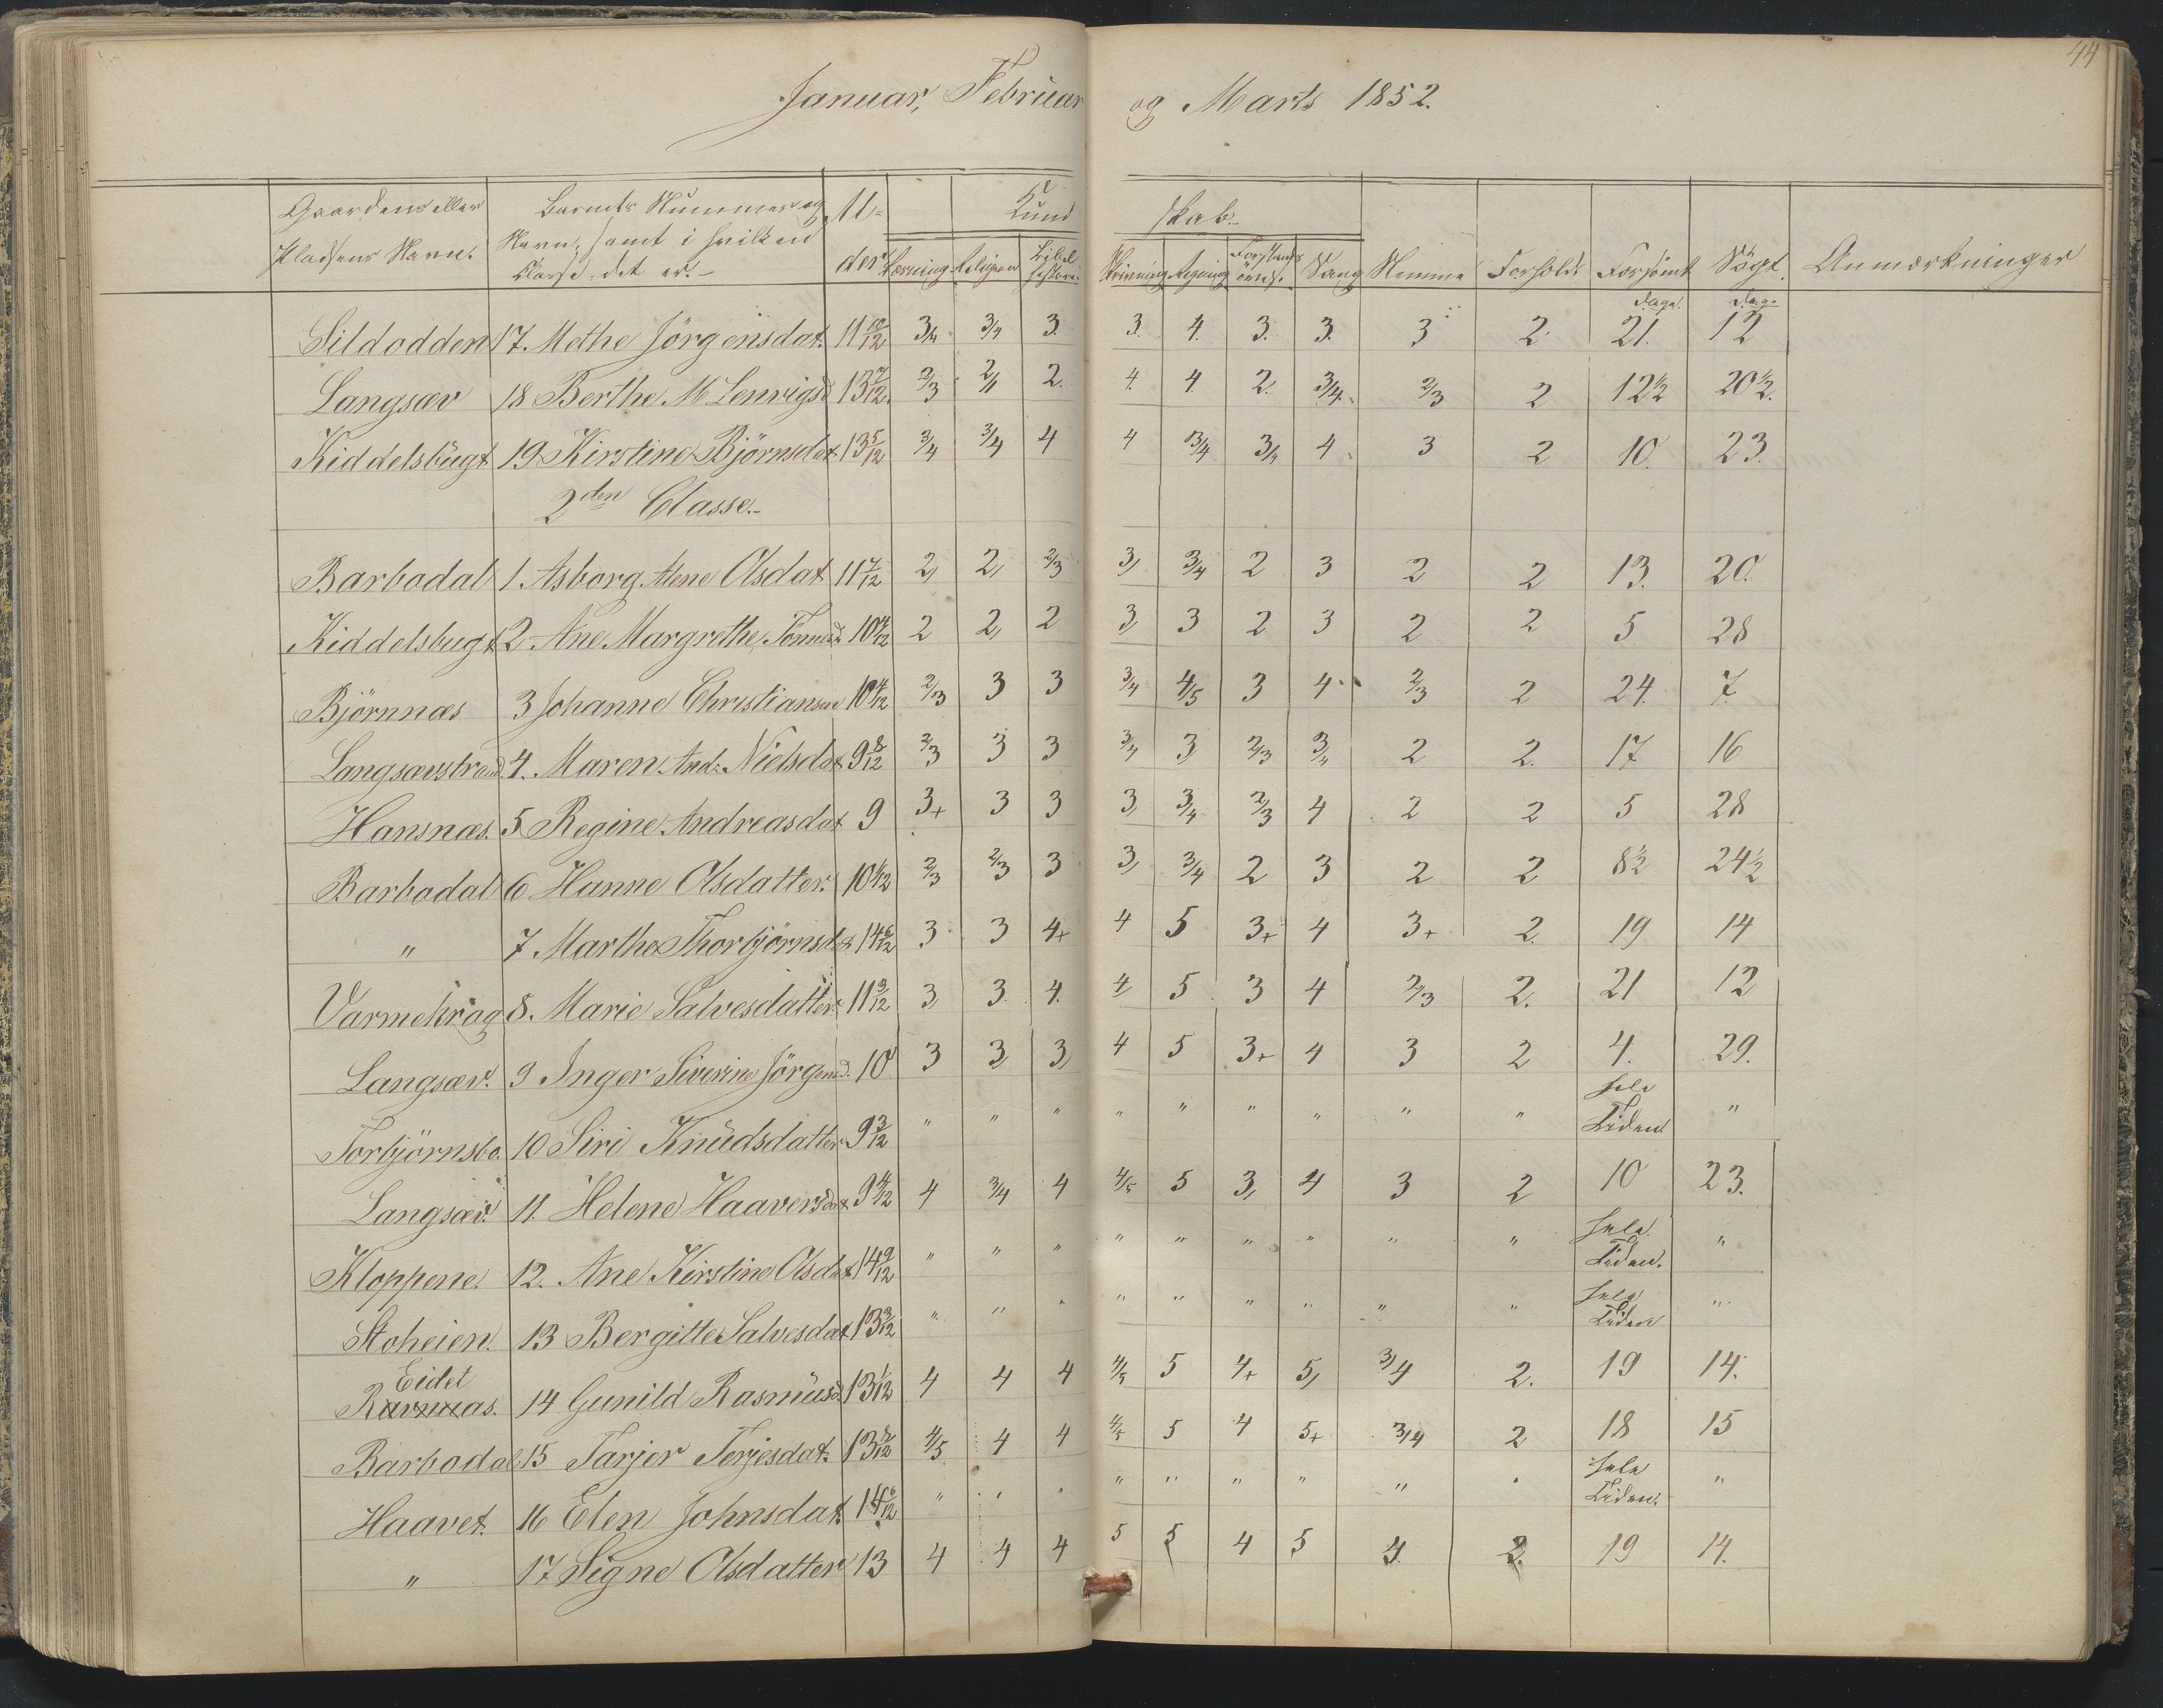 44
Januar, Februar og Marts 1852.
Gaardens eller Pladsens Navn. | Barnets Nummer og Navn, samt i hvilken Classe det er. | Alder | Kundskab. | Nemme | Forhold | Forsömt | Sögt | Anmærkninger
Læsning | Religion | Bibelhistorie | Skrivning | Regning | Forstandsövels. | Sang | Dage | Dage
Sildodden | 17. Methe Jörgensdat. | 11 10/12 | 3/4 | 3/4 | 3. | 3. | 4. | 3. | 3. | 3 | 2. | 21. | 12
Langsæv | 18 Berthe M Lenvigsd | 13 7/12. | 2/3 | 2/ | 2. | 4. | 4. | 2. | 3/4. | 2/3 | 2 | 12 1/2 | 20 1/2.
Kiddelsbugt | 19. Kirstine Björnsdat | 13 5/12 | 3/4 | 3/4 | 4 | 4 | 3/4 | 3/4 | 4 | 3 | 2 | 10. | 23.
2den Classe.
Barbodal | 1. Asborg Alene Olsdat | 11 7/12 | 2, | 2, | 2/3 | 3, | 3/4 | 2 | 3 | 2 | 2 | 13. | 20.
Kiddelsbugt | 2. Ane Margrethe | 10 | 2 | 2, | 2 | 3, | 3 | 2 | 3 | 2 | 2 | 5 | 28
Björnnæs | 3 Johanne Christiansen | 10 4/12 | 2/3 | 3 | 3 | 3/4 | 4/5 | 3 | 4 | 2/3 | 2 | 24. | 7.
Langsævstrand | 4. Maren And. Nielsdat | 9 8/12 | 2/3 | 3 | 3 | 3/4 | 3 | 2/3 | 3/4 | 2 | 2. | 17 | 16
Hansnæs. | 5 Regine Andreasdat | 9 | 3+ | 3 | 3 | 3, | 3/4 | 2/3 | 4 | 2 | 2 | 5 | 28
Barbodal | 6 Hanne Olsdatter. | 10 | 2/3 | 2/3 | 3 | 3, | 3/4 | 2 | 3 | 2 | 2 | 8 1/2 | 24 1/2
" | 7 Marthe Thorbjörnsdat | 14 6/12 | 3 | 3 | 4+ | 4 | 5 | 3+ | 4 | 3+ | 2. | 19 | 14
Varmekrog | 8. Marie Salvesdatter | 11 3/12 | 3, | 3. | 4. | 4 | 5 | 3 | 4 | 2/3 | 2. | 21 | 12
Langsæv. | 9 Inger Siverine Jörgensd. | 10 | 3 | 3, | 3, | 4 | 5 | 3+ | 4 | 3 | 2 | 4. | 29.
Torbjörnsbo. | 10 Siri Knudsdatter | 9 3/12 | " | " | " | " | " | " | " | " | " | hele Tiden | "
Langsæv. | 11. Helene Haaversdat | 9 4/12 | 4 | 3/4 | 4 | 4/5 | 5 | 3, | 4 | 3 | 2 | 10 | 23.
Kloppene. | 12. Ane Kirstine Olsdat | 14 9/12 | " | " | " | " | " | " | " | " | " | hele Tiden. | "
Stoheien. | 13 Bergitte Salvesdat | 13 3/12 | " | " | " | " | " | " | " | " | " | hele Tiden | "
Eidet
Ravnnæs. | 14 Gunild Rasmusd | 13 1/12 | 4 | 4 | 4 | 4/5 | 5 | 4+ | 5, | 3/4 | 2. | 19 | 14.
Barbodal | 15 Tarjer Terjesdat. | 13 | 4/5 | 4 | 4 | 4/5 | 5 | 4 | 5+ | 3/4 | 2 | 18 | 15
Haavet. | 16 Elen Johnsdat. | 14 6/12 | " | " | " | " | " | " | " | " | " | hele Tiden. | "
" | 17 Signe Olsdatter | 13 | 4 | 4 | 4 | 5 | 5 | 4 | 5 | 4. | 2. | 19 | 14.